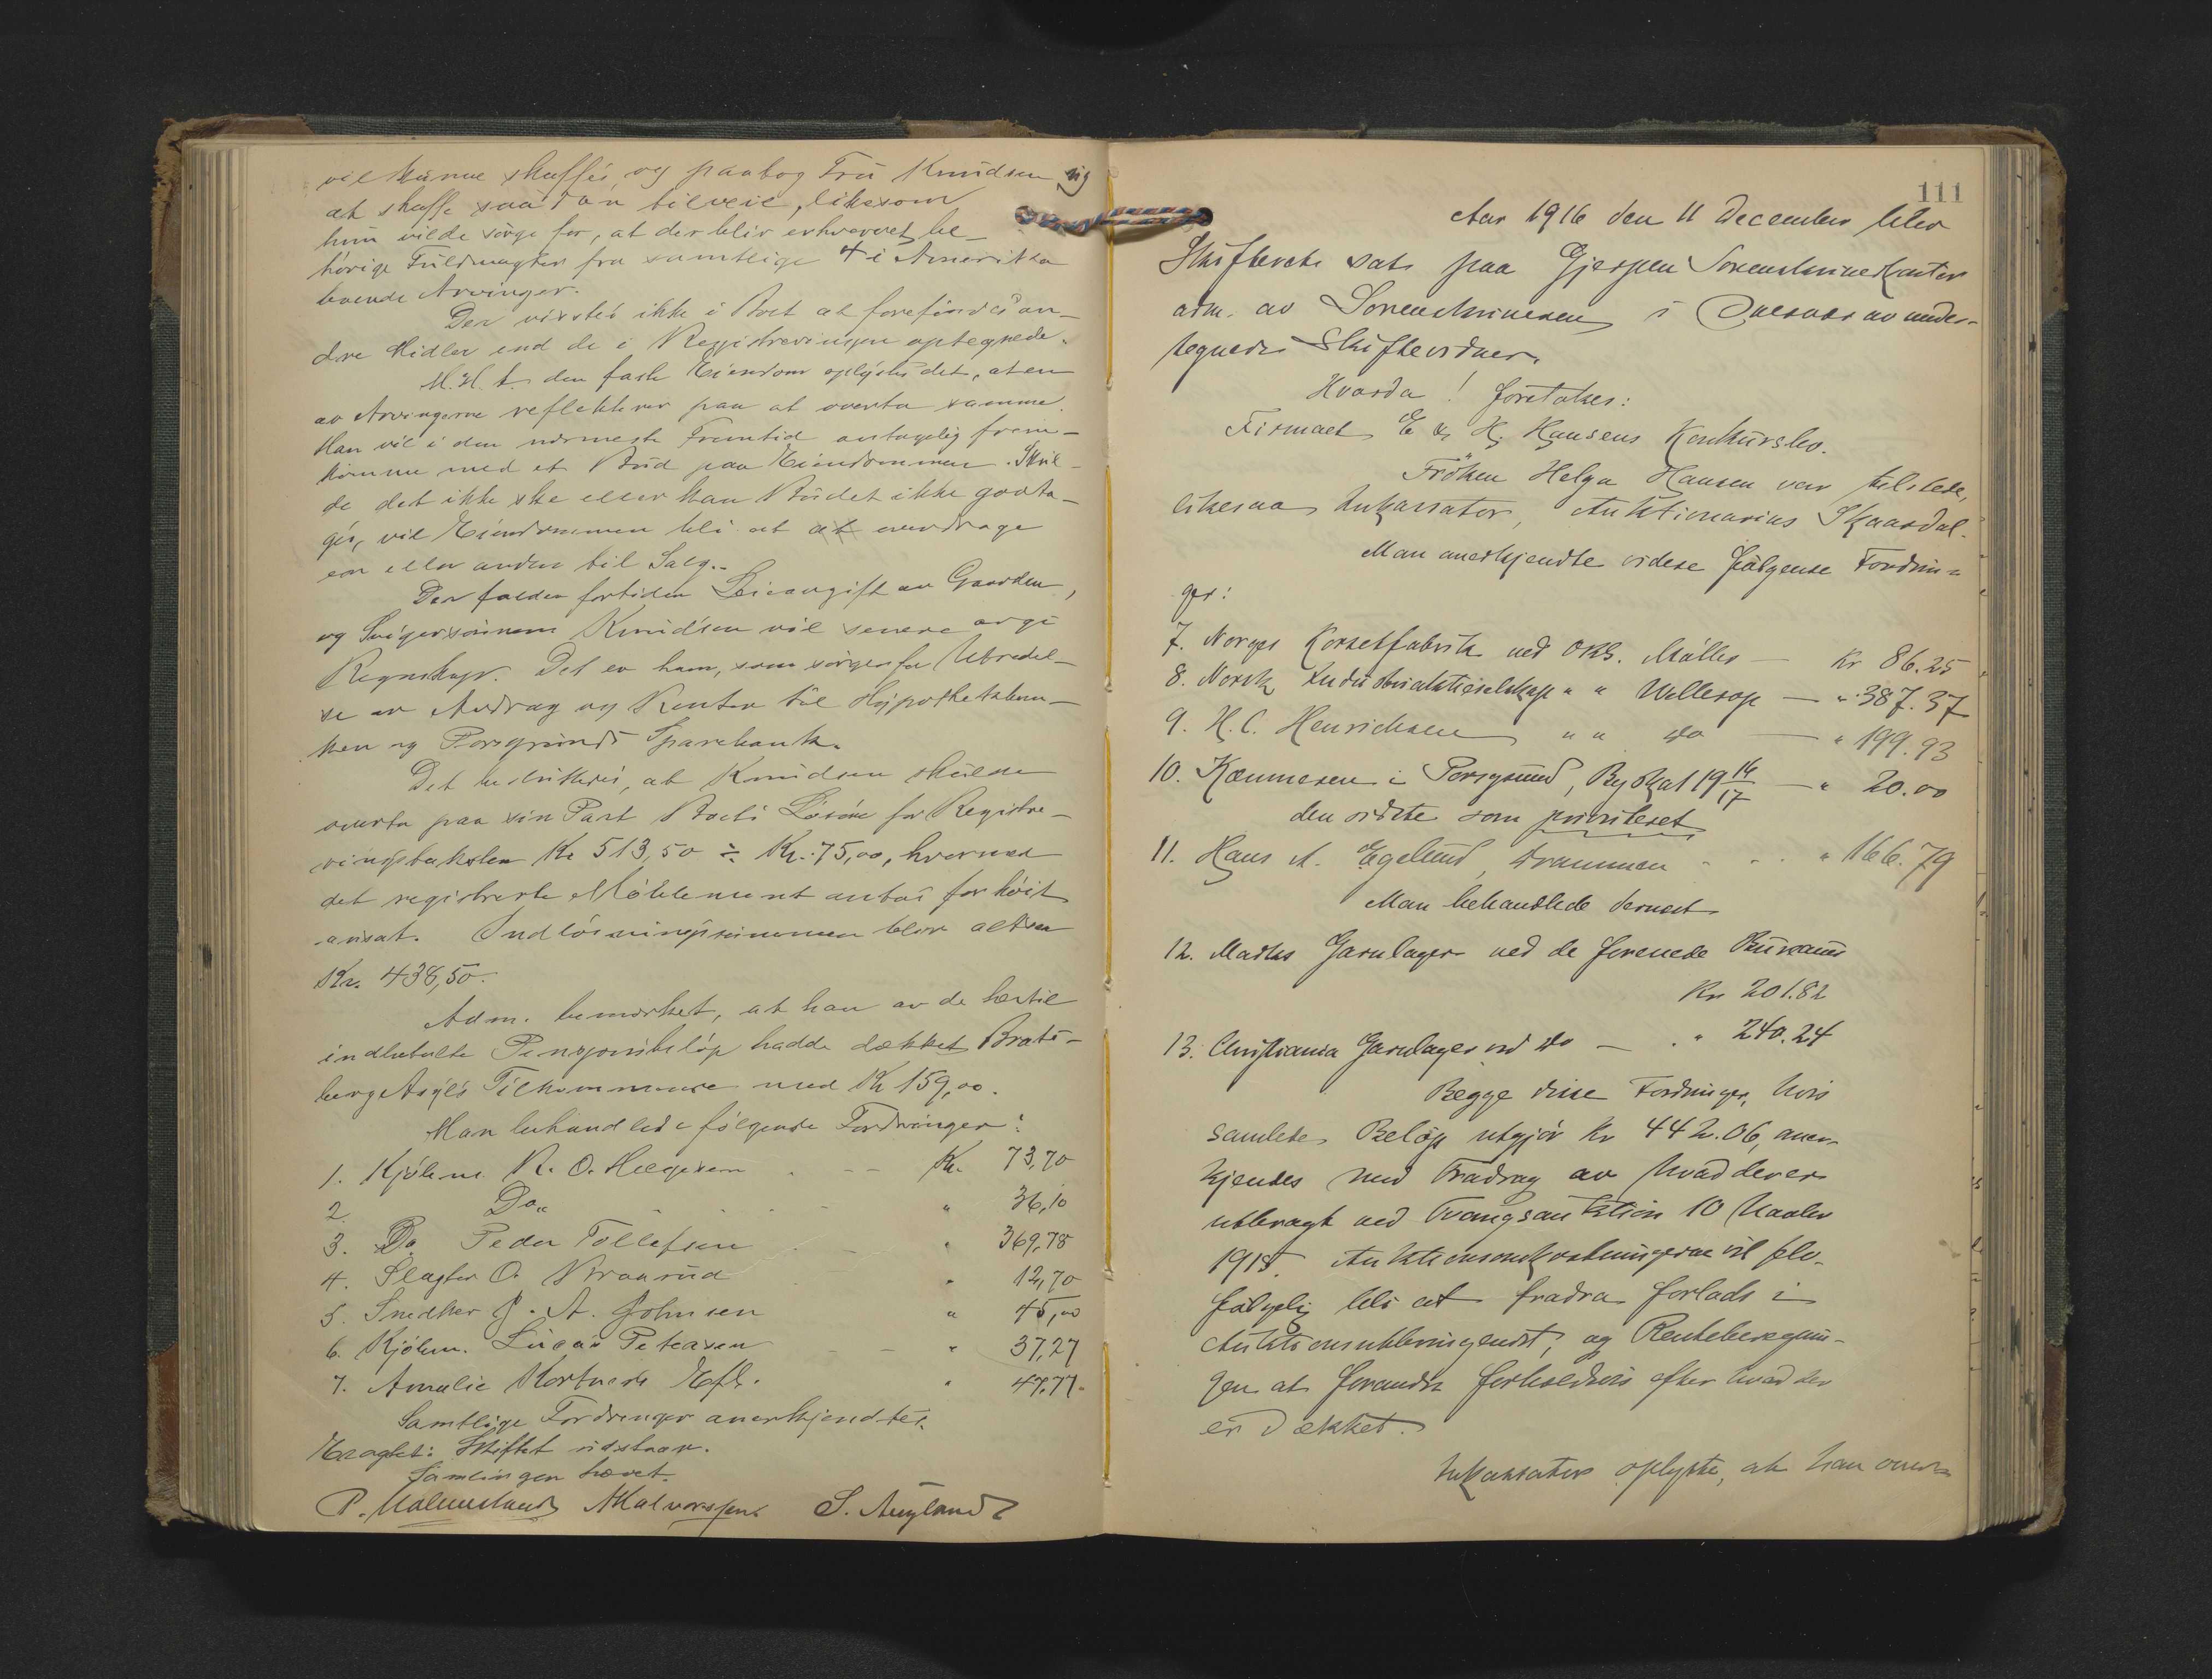 vil kunne skaffes, og paatog Fru Knudsen sig
at skaffe saadan tilveie, likesom
hun vilde sörge for, at der blir erhvervet be-
hörige Fuldmagter fra samtlige 4 i Amerika
boende Arvinger.
Der vistes ikke i Boet at forefindes an-
dre Midler end de i Registreringen optegnede.
M.H.t. den faste Eiendom oplystes det, at en
av Arvingerne reflekterer paa at overta samme.
Han vil i den nærmeste Fremtid antagelig frem-
komme med et Bud paa Eiendommen. Skul-
de det ikke ske eller kan Budet ikke godta-
ges, vil Eiendommen bli at at overdrage
en eller anden til Salg.-
Der falder fortiden Leieavgift av Gaarden,
og Svigersönnen Knudsen vil senere avgi
Regnskap. Det er ham, som sörger for Utredel-
se av Avdrag og Renter til Hypothekban-
ken og Porsgrunds Sparebank.
Det besluttedes, at Knudsen skulde
overta paa sin Part Boets Lösöre for Registre-
ringstaksten Kr 513,50 ÷ Kr. 75,00, hvorved
det registrerte Möblement antas for höit
ansat. Indlösningssummen blir altsaa
Kr. 438,50.
Adm. bemerket, at han av de hertil
indbetalte Pensjonsbelöp hadde dækket Brats-
berg Asyls Tilkommende med Kr 159,00.
Man behandlede følgende Fordringer:
1. Kjöbm. R. O. Helgesen - - Kr. 73,70
2. Do. - - - " 36,10
3. Do Peder Tollefsen - - " 369,78
4. Slagter O. Braarud " 12,70
5. Snedker P. A. Johnsen " 45,00
6. Kjöbm. Lucas Petersen - - " 37,27
7. Amalie Kortneds Eftf. " 47,77.
Samtlige Fordringer anerkjendtes.
Eragtet: Skiftet utstaar.
Samlingen hævet.
P. Malmstand Halvorsen S. Augland
111
Aar 1916 den 11 December blev
Skifteret sat paa Gjerpen Sorenskriverkontor
adm. av Sorenskriveren i Overvær av under-
tegnede Skiftevidner.
Hvorda! foretokes:
Firmaet E & H. Hansens Konkursbo.
Fröken Helga Hansen var tilstede,
likesaa Inkassator, Auktionarius Skaardal.
Man anerkjendte videre følgende Fordrin-
ger:
7. Norges Korsetfabrik ved OKS. Möller — Kr 86.25
8. Norsk Industriaktieselskap " " Willesop — " 387.37
9. H.C. Henrichsen " " do — " 199.93
10. Kæmneren i Porsgrund, Byskat 1916/17 — " 20.00
den sidste som prioritert
11. Hans A. Egelund, Drammen - - - " 166.79
Man behandlede dernæst
12. Mathes Garnlager ved de forenede Bureauer
Kr 201.82
13. Christiania Garnlager ved do — " 240.24
Begge disse Fordringer, hvis
samlede Belöp utgjör Kr 442.06, aner-
kjendes med Fradrag av hvad der er
utbragt ved Tvangsauktion 10 Marts
1915. Auktionsomkostningerne vil sele-
fölgelig bli at fradra forlods i
Auktionsutbringendet, og Renteberegnin-
gen at forandre forholdsvis efter hvad der
er dækket.
Inkassator oplyste, at han over-